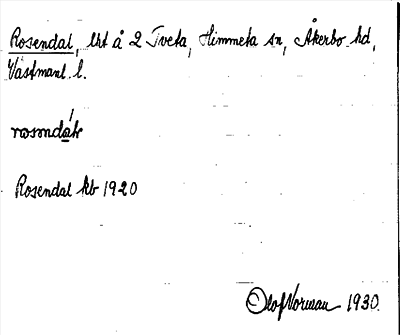 Rosendal, lht å 2 Tveta, Himmeta sn, Åkerbo hd,
Västmanl. l.
Rosendal kb 1920
Olof Norman 1930.